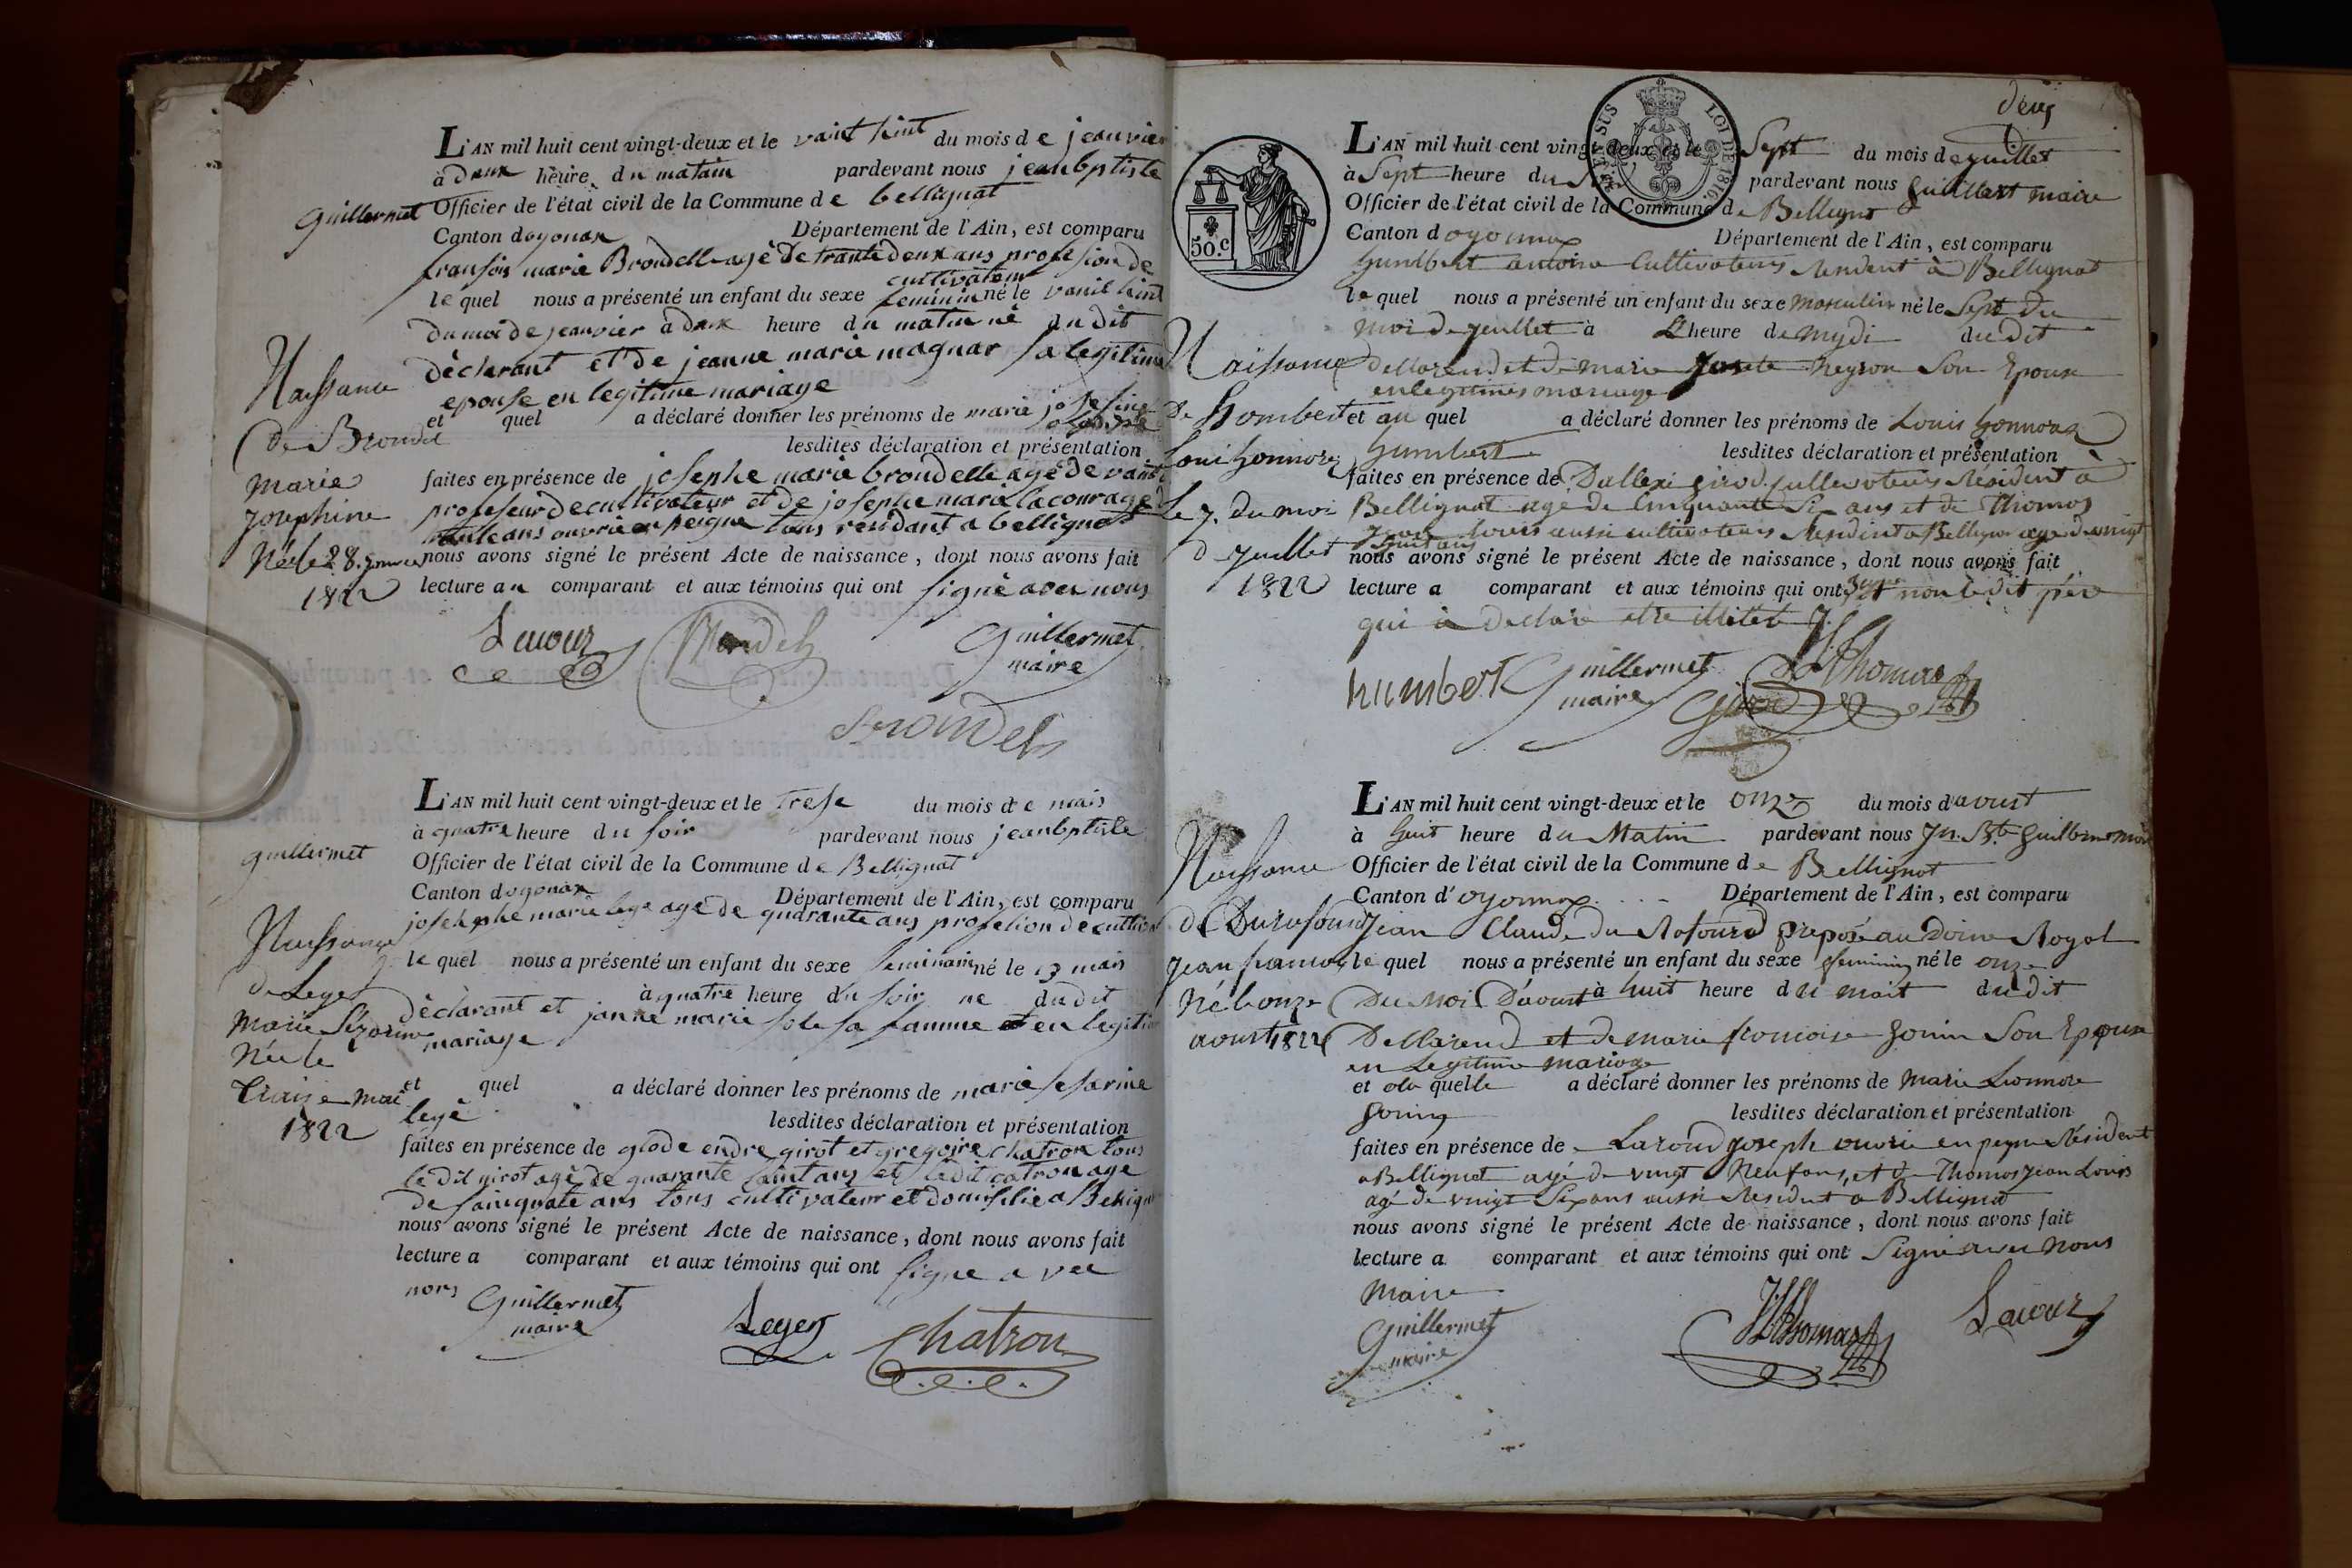 L'AN mil huit cent vingt-deux et le vaint huit du mois de jeanvier
à deux heure du matain pardevant nous jeanbptiste
guillermet Officier de l'état civil de la Commune de bellignat
Canton doyonax Département de l'Ain, est comparu
fransois marie Brondelle agè de trante deux ans profesion de
cultivateur
le quel nous a présenté un enfant du sexe feminin né le vaint huit
du moi de jeanvier a deux heure du matin né du dit
dèclarant et de jeanne marie magnar sa legitime
epouse en legitime mariage
et quel a déclaré donner les prénoms de marie josefine
lesdites déclaration et présentation
faites en présence de josephe marie brondelle agè de vaint
profeseur de cultivateur et de josephe marie lacour age
ans ouvrie en peigne tous residant a bellignat
nous avons signé le présent Acte de naissance, dont nous avons fait
lecture au comparant et aux témoins qui ont signè avec nous
Naissance
de Brondel
Marie
Josephine
Née le 28 Janvier
1822
Lacour Brondel Guillermet
maire
Brondel
L'AN mil huit cent vingt-deux et le trese du mois de mais
à quatre heure du soir pardevant nous jeanbptiste
guillermet Officier de l'état civil de la Commune de Bellignat
Canton doyonax Département de l'Ain, est comparu
josephe marie lege age de quarante ans profesion de cultiv
le quel nous a présenté un enfant du sexe feminain né le 13 mais
à quatre heure du soir ne du dit
dèclarant et janne marie sa famme et en legitime
mariage
et quel a déclaré donner les prénoms de marie sesarine
legè
lesdites déclaration et présentation
faites en présence de glode endre girot et gregoire chatron tous
le dit girot agè de quarante saint ans et ledit catron age
de sainquate ans tous cultivateur et domisilie a Belignat
nous avons signé le présent Acte de naissance, dont nous avons fait
lecture a comparant et aux témoins qui ont signe avec
nous
Naissance
de Leger
Marie Sezarine
Née le
traise Mai
1822
Guillermet
maire
Leger Chatron
deux
TIMBRE SUS LOI DE 1816
50.c
L'AN mil huit cent vingt-deux et le Sept du mois de juillet
à Sept heure du pardevant nous Guillermet maire
Officier de l'état civil de la Commune de Bellignat
Canton d oyonnax Département de l'Ain, est comparu
humbert antoine Cultivateur résident à Bellignat
le quel nous a présenté un enfant du sexe masculin né le Sept du
moi de juillet à heure de mydi du dit
dellarend et de marie Josete Neyron Son Epouse
en legitimes mariage
et au quel a déclaré donner les prénoms de Louis honnore
humbert
lesdites déclaration et présentation
faites en présence de Dallexi girod cultivateur Résident à
Bellignat age de cinquante Six ans et de Thomas
Jean Louis aussi cultivateur résident a Bellignat age de vingt
huit ans
nous avons signé le présent Acte de naissance, dont nous avons fait
lecture a comparant et aux témoins qui ont signe non le dit père
qui à déclaré etre illitéré
Naissance
de Hombert
Loui honnore
Le 7. du moi
d juillet
1822
humbert Guillermet
maire
Girod
JL Thomas
L'AN mil huit cent vingt-deux et le onze du mois d'avoust
à huit heure du Matin pardevant nous Jn. Bte Guillermet
Officier de l'état civil de la Commune de Bellignat
Canton d'oyonnax Département de l'Ain, est comparu
Jean Claude du Rofourd préposé au doine Royal
le quel nous a présenté un enfant du sexe feminin né le onze
Du Moi D'avoust à huit heure du mait du dit
Dellarend et de marie francoise Gonin Son Epouse
en Legitime mariage
et ala quelle a déclaré donner les prénoms de Marie Lionnore
Gonin
lesdites déclaration et présentation
faites en présence de Joseph ouvrie en peyne Résident
a Bellignat agé de vingt Neuf ans, et de Thomas Jean Louis
agé de vingt Six ans aussi résident a Bellignat
nous avons signé le présent Acte de naissance, dont nous avons fait
lecture a comparant et aux témoins qui ont Signé avec Nous
Maire
Naissance
de Durofourd
Jean francois
Né le onze
avoust 1822
Guillermet
maire
JL Thomas
Lacour